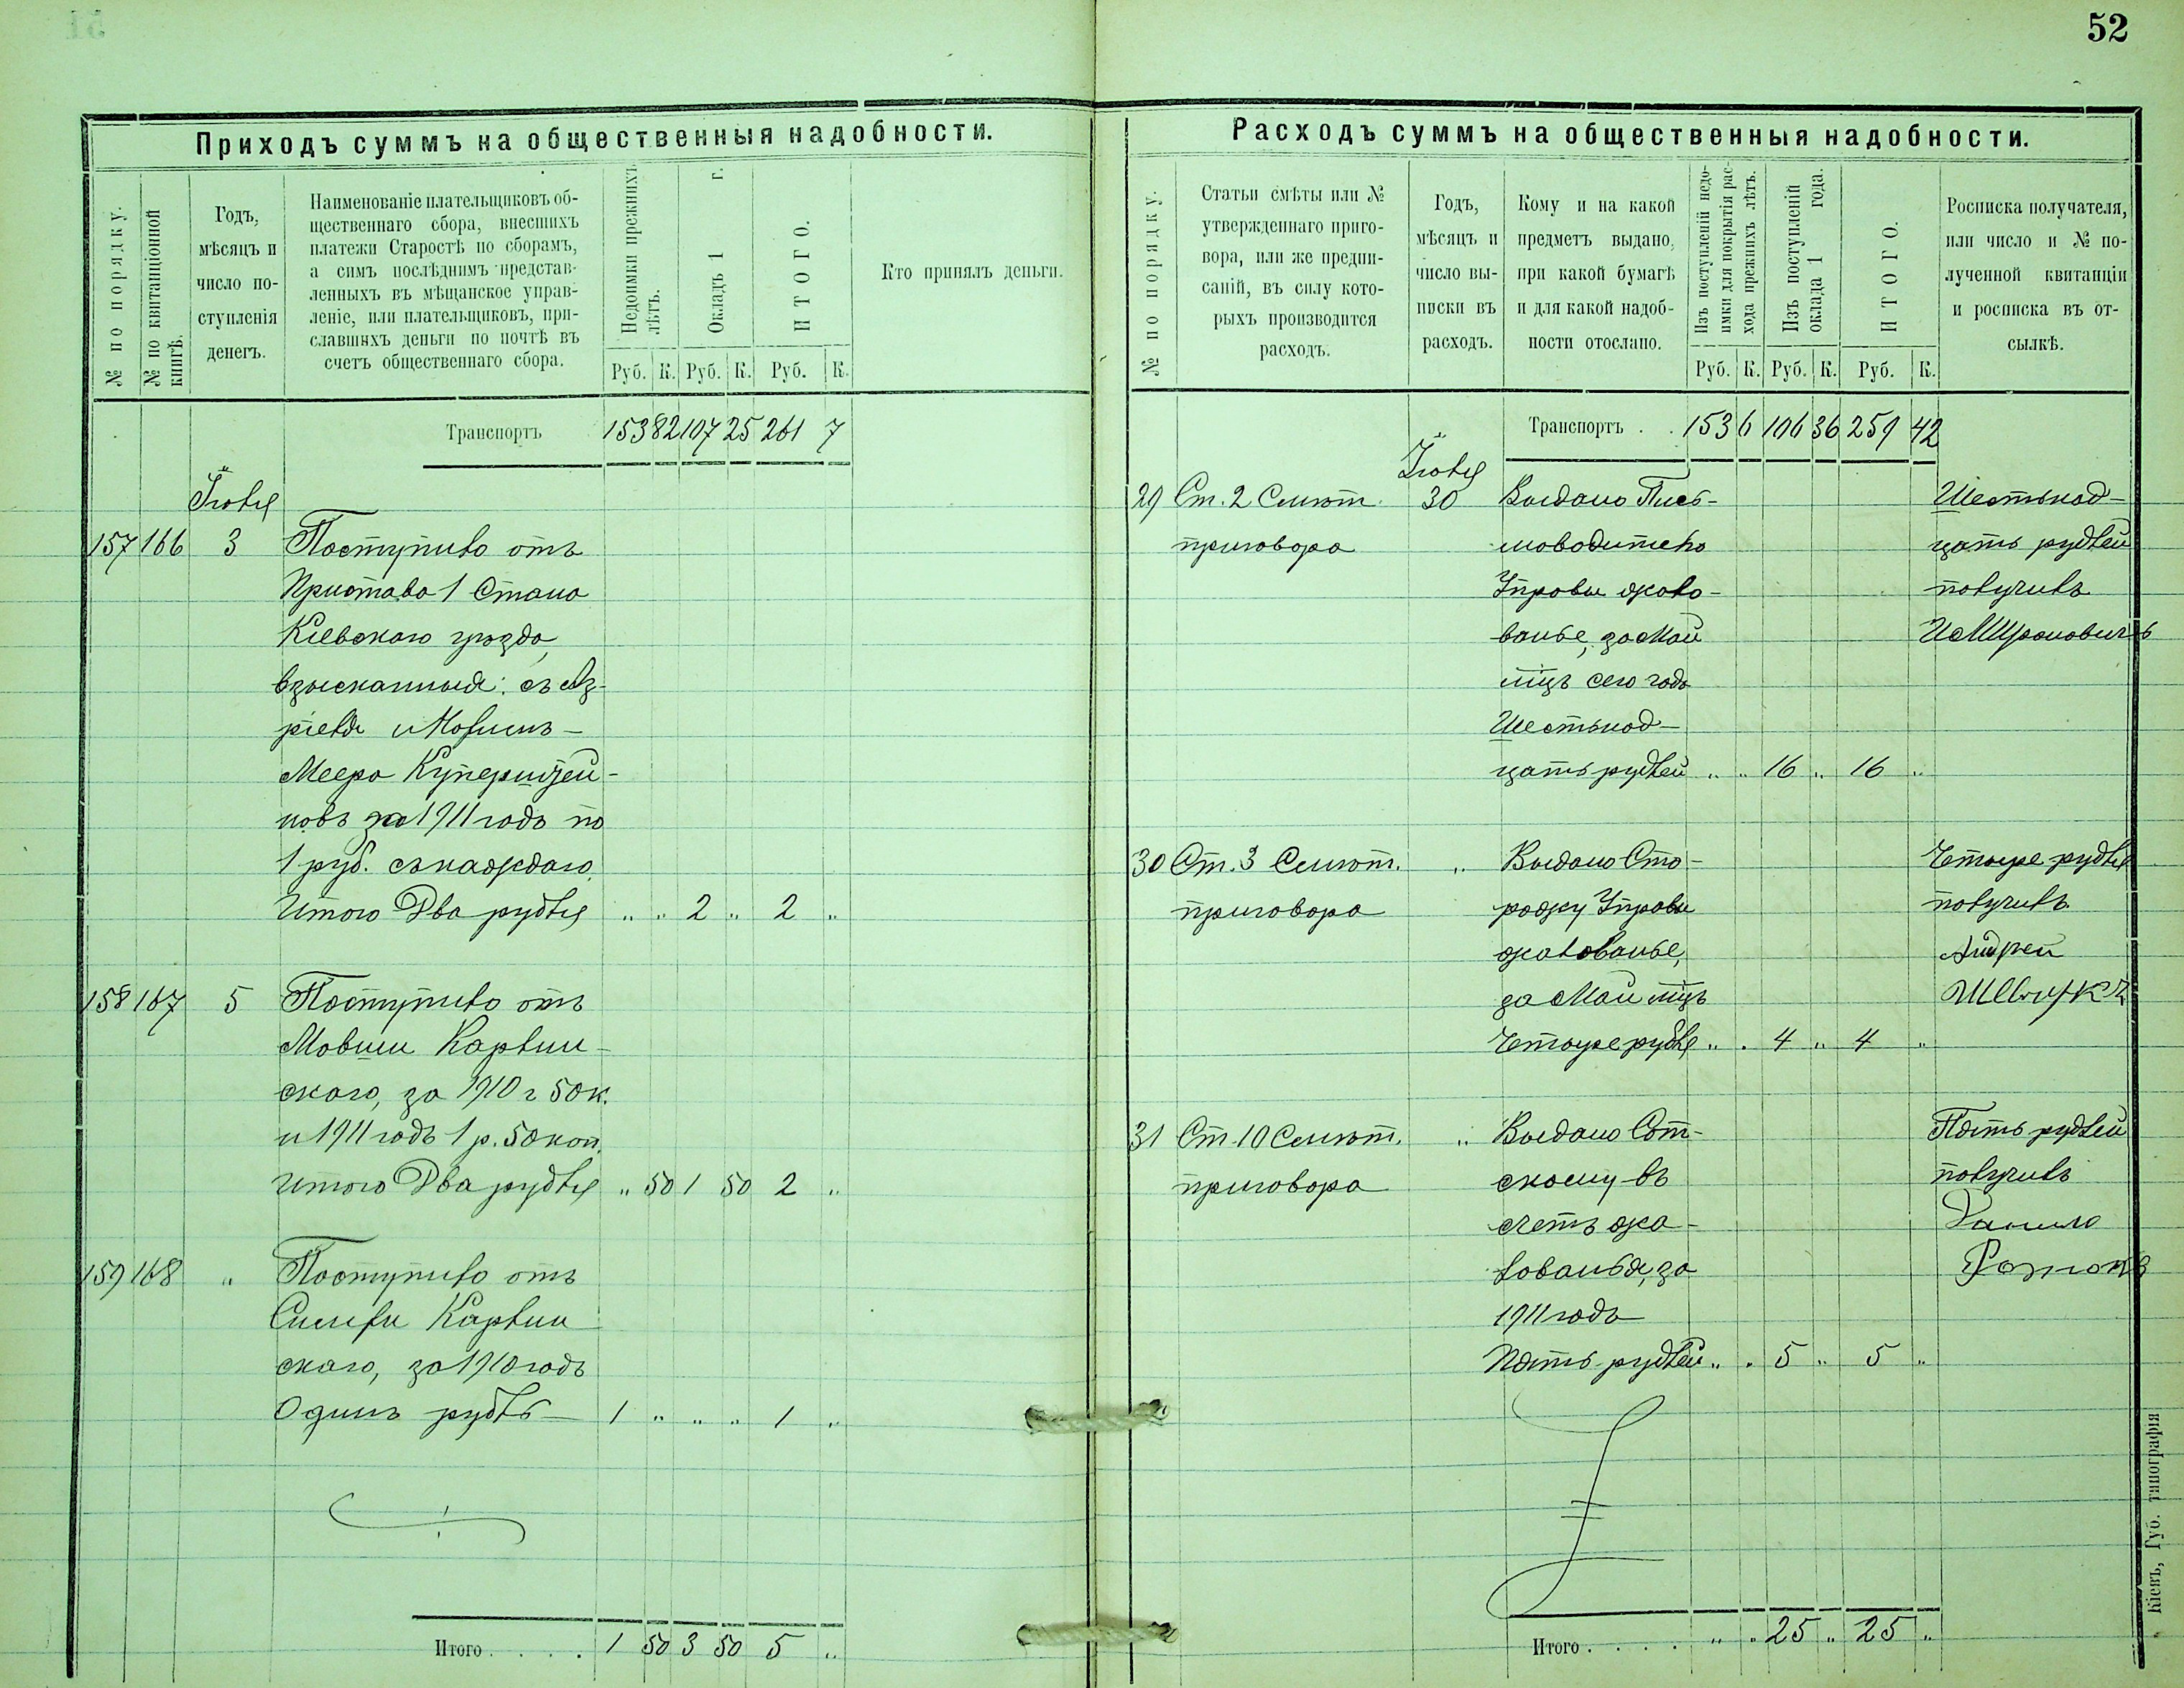 52
Приходъ суммъ на общественныя надобности.
№ по порядку.
№ по квитанціонной
книгѣ.
Годъ,
мѣсяцъ и
число по-
ступленія
денегъ.
Наименованіе плательщиковъ об-
щественнаго сбора, внесшихъ
платежи Старостѣ по сборамъ,
а симъ послѣднимъ представ-
ленныхъ въ мѣщанское управ-
леніе, или плательщиковъ, при-
славшихъ деньги по почтѣ въ
счетъ общественнаго сбора.
Недоимки прежнихъ
лѣтъ.
Окладъ 1 г.
ИТОГО.
Руб. К. Руб. К. Руб. К.
Кто принялъ деньги.
Транспортъ 153 82 107 25 261 7
Іюня
157 166 3 Поступило отъ
Пристава 1 Стана
Кіевскаго уѣзда,
взысканныя: съ Аз-
ріеля и Мовши-
Меера Куперштей-
новъ за 1911 годъ по
1 руб. съ каждаго.
Итого Два рубля " " 2 " 2 "
158 167 5 Поступило отъ
Мовши Карлин-
скаго, за 1910 г 50 к.
и 1911 годъ 1 р. 50 коп.
Итого Два рубля " 50 1 50 2 "
159 168 " Поступило отъ
Карлин
скаго, за 1910 годъ
Одинъ рубль 1 " " " 1 "
Итого . . . . 1 50 3 50 5 "
Расходъ суммъ на общественныя надобности.
№ по порядку.
Статьи смѣты или №
утвержденнаго приго-
вора, или же предпи-
саній, въ силу кото-
рыхъ производится
расходъ.
Годъ,
мѣсяцъ и
число вы-
писки въ
расходъ.
Кому и на какой
предметъ выдано,
при какой бумагѣ
и для какой надоб-
ности отослано.
Изъ поступленій недо-
имки для покрытія рас
хода прежнихъ лѣтъ.
Изъ поступленій
оклада 1 года.
ИТОГО.
Руб. К. Руб. К. Руб. К.
Росписка получателя,
или число и № по-
лученной квитанціи
и росписка въ от-
сылкѣ.
Транспортъ . . 153 6 106 36 259 42
Іюня
29 Ст. 2 Смѣт. 30 Выдано Пись- Шестьнад-
приговора моводителю цать рублей
Управы жало- получилъ
ванье, за Май
мцъ сего года
Шестьнад-
цать рублей " " 16 " 16 "
30 Ст. 3 Смѣт. " Выдано Сто- Четыре рубля
приговора рожу Управы получилъ
жалованье, Андрей
за Май мцъ
Четыре рубля " " 4 " 4 "
31 Ст. 10 Смѣт. " Выдано Сот- Пять рублей
приговора скому въ получилъ
счетъ жа- Данило
лованья, за
1911 годъ
Пять рублей " " 5 " 5 "
Итого . . . . " " 25 " 25 "
Кіевъ, Губ. типографія